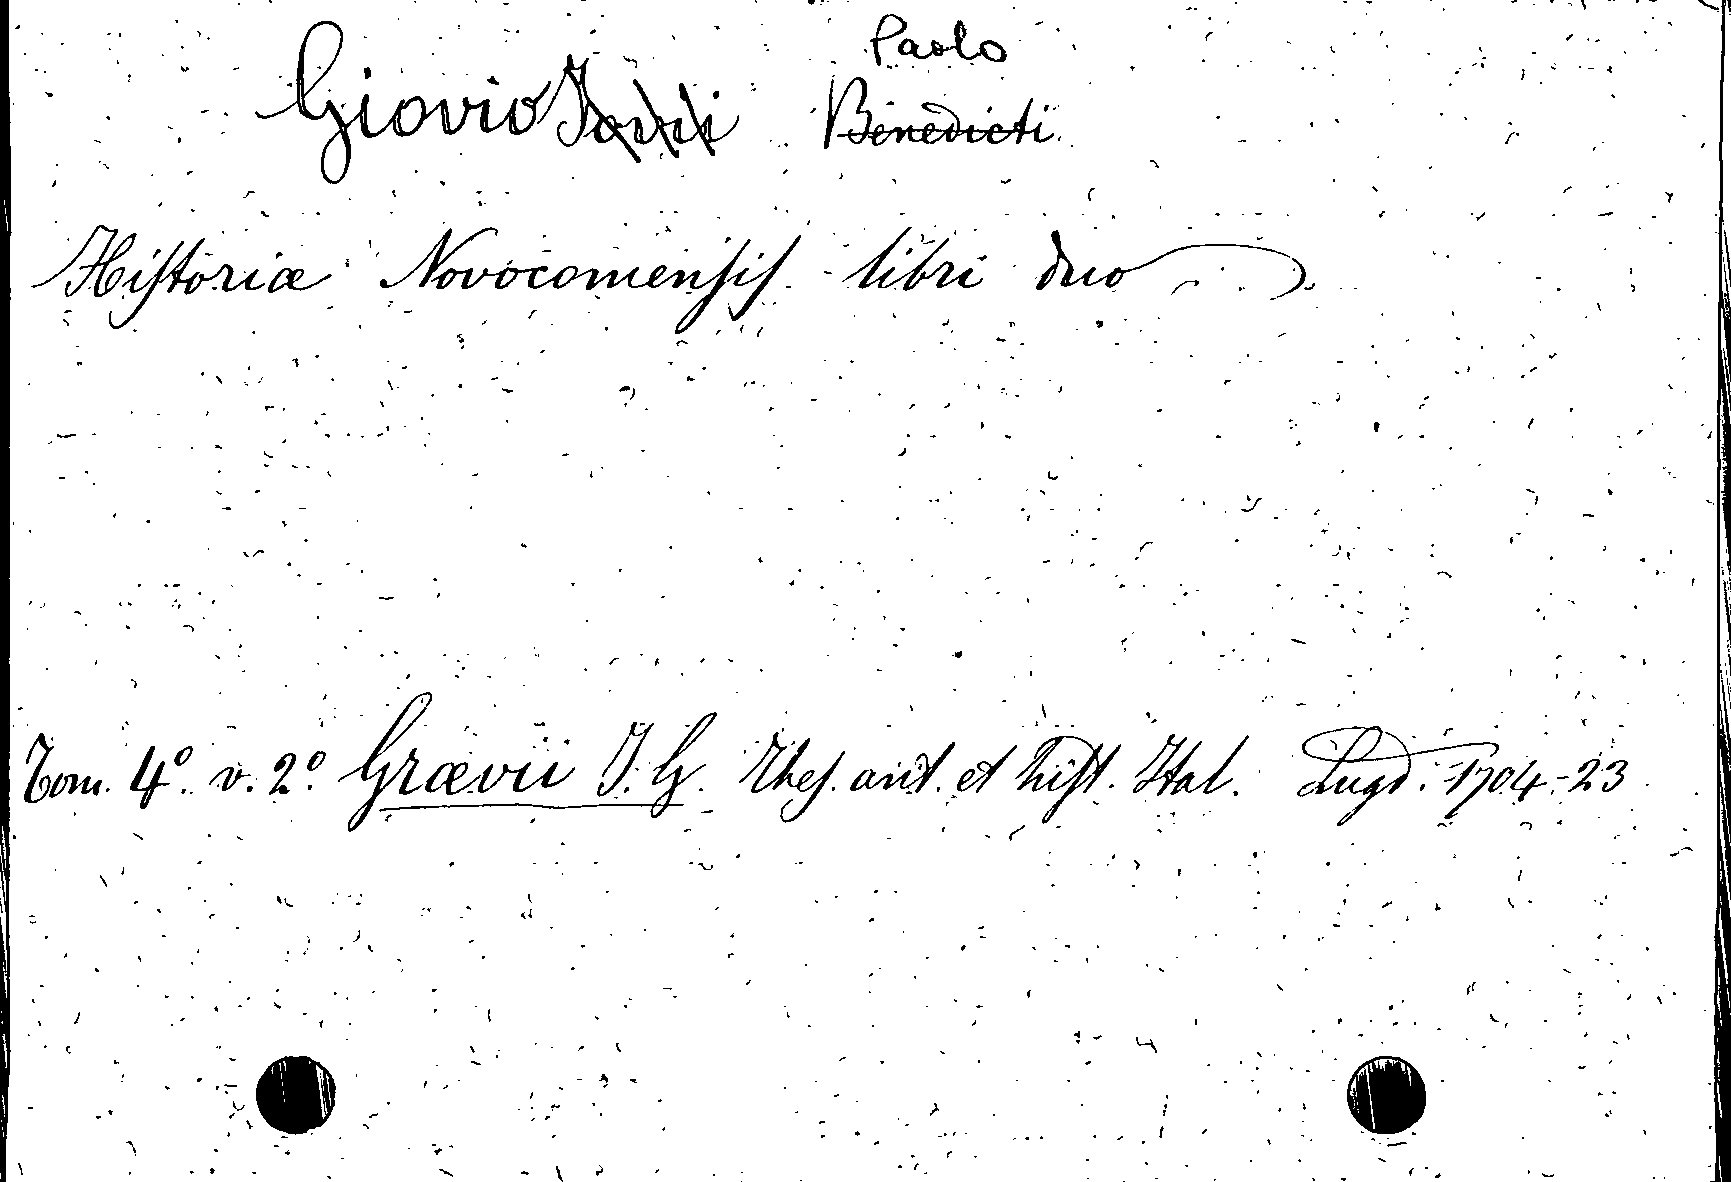 Paolo
Giovio Jovii Benedicti
Hiſtoriæ Novocomenſiſ libri duo
Tom. 4º. v. 2º. Grævii J. G. Theſ. ant. et hiſt. Ital. Lugd. 1704-23